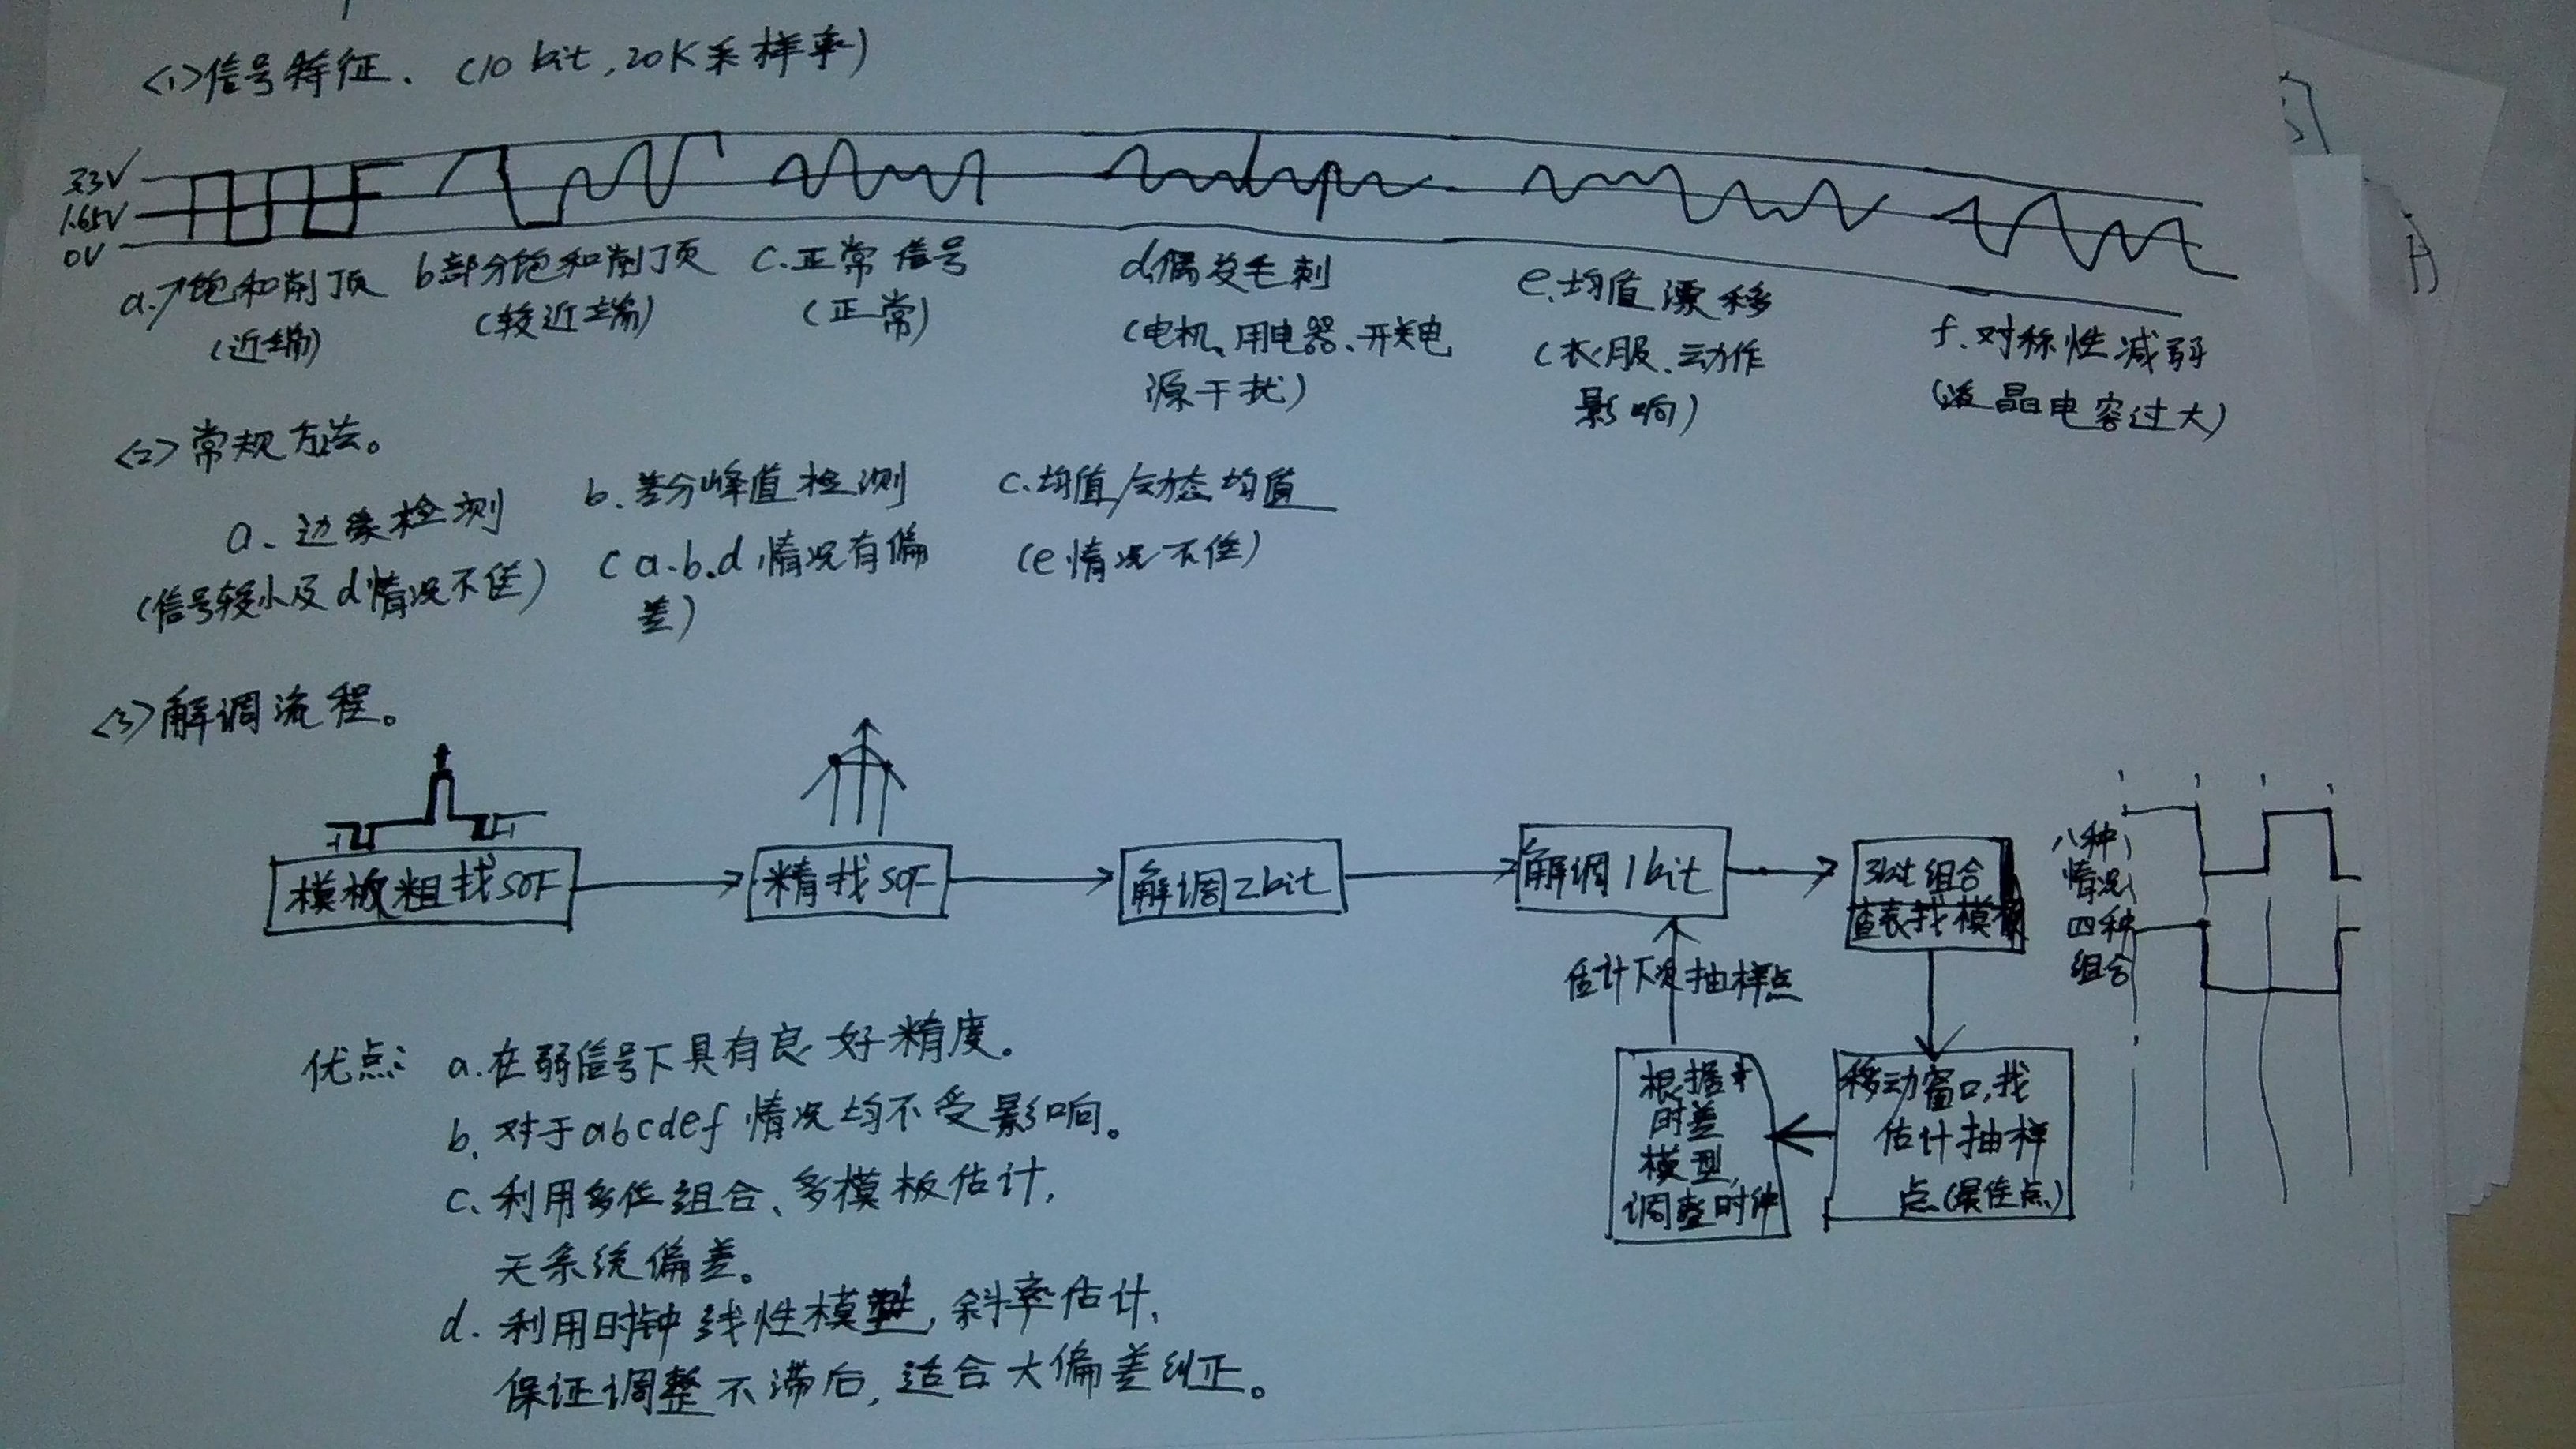 <1>信号特征.（10 bit,20K采样率）
3.3V
1.65V
0V
a.饱和削顶
（近端）
b部分饱和削顶
（较近端）
c.正常信号
（正常）
d.偶发毛刺
（电机、用电器、开关电
源干扰）
e.均值漂移
（衣服、动作
影响）
f.对称性减弱
（液晶电容过大）
<2>常规方法。
a、边缘检测
（信号较小及d情况不佳）
b.差分峰值检测
（a.b.d情况有偏
差）
c.均值/动态均值
（e情况不佳）
<3>解调流程。
模板粗找SOF
精找SOF
解调2bit
解调1bit
3bit组合
查表找模板
八种
情况
四种
组合
估计下次抽样点
移动窗口,找
估计抽样
点(最佳点)
根据
时差
模型,
调整时钟
优点:
a.在弱信号下具有良好精度。
b.对于abcdef情况均不受影响。
c.利用多位组合、多模板估计,
无系统偏差。
d.利用时钟线性模型,斜率估计,
保证调整不滞后,适合大偏差纠正。